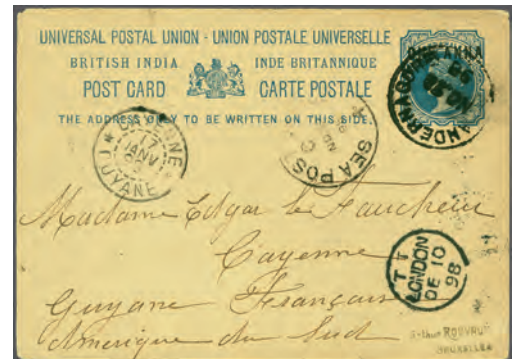 UNIVERSAL POSTAL UNION - UNION POSTALE UNIVERSELLE
BRITISH INDIA INDE BRITANNIQUE
POST CARD CARTE POSTALE
THE ADDRESS ONLY TO BE WRITTEN ON THIS SIDE.
ANNA
CHANDERNAGORE
CAYENNE
17
JANV
GUYANE
SEA POS
Madame Edgar le Faucheur
Cayenne
Guyane Français
Amerique du Sud
T T
LONDON
DE 10
98
Arthur ROEYRUT
BRUXELLES